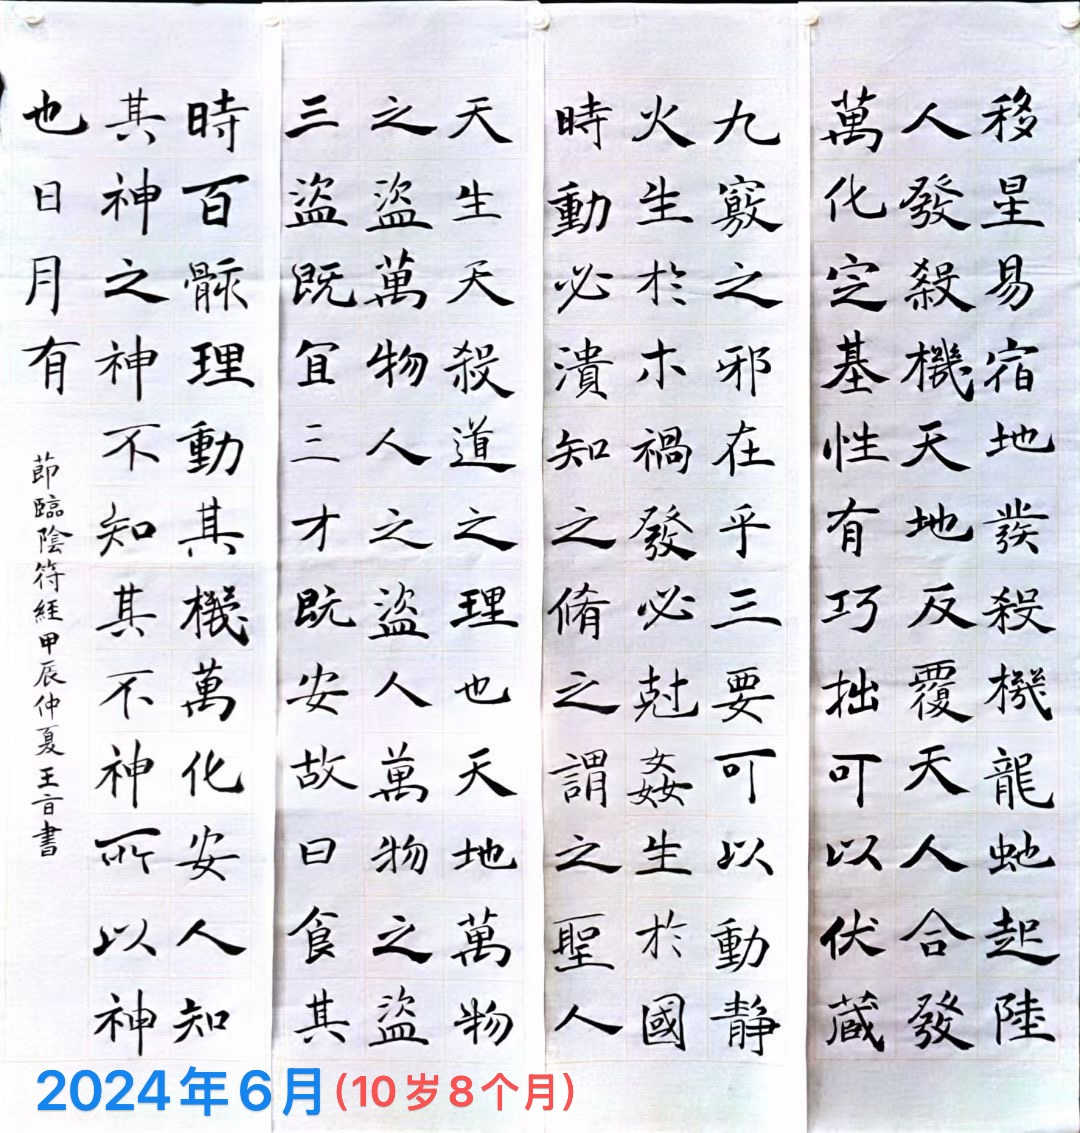 移星易宿地發殺機龍虵起陸
人發殺機天地反覆天人合發
萬化定基性有巧拙可以伏蔵
九竅之邪在乎三要可以動静
火生於木禍發必尅姦生於國
時動必潰知之脩之謂之聖人
天生天殺道之理也天地萬物
之盜萬物人之盜人萬物之盜
三盜既宜三才既安故曰食其
時百骸理動其機萬化安人知
其神之神不知其不神所以神
也日月有
節臨陰符經甲辰仲夏王書
2024年6月(10岁8个月)